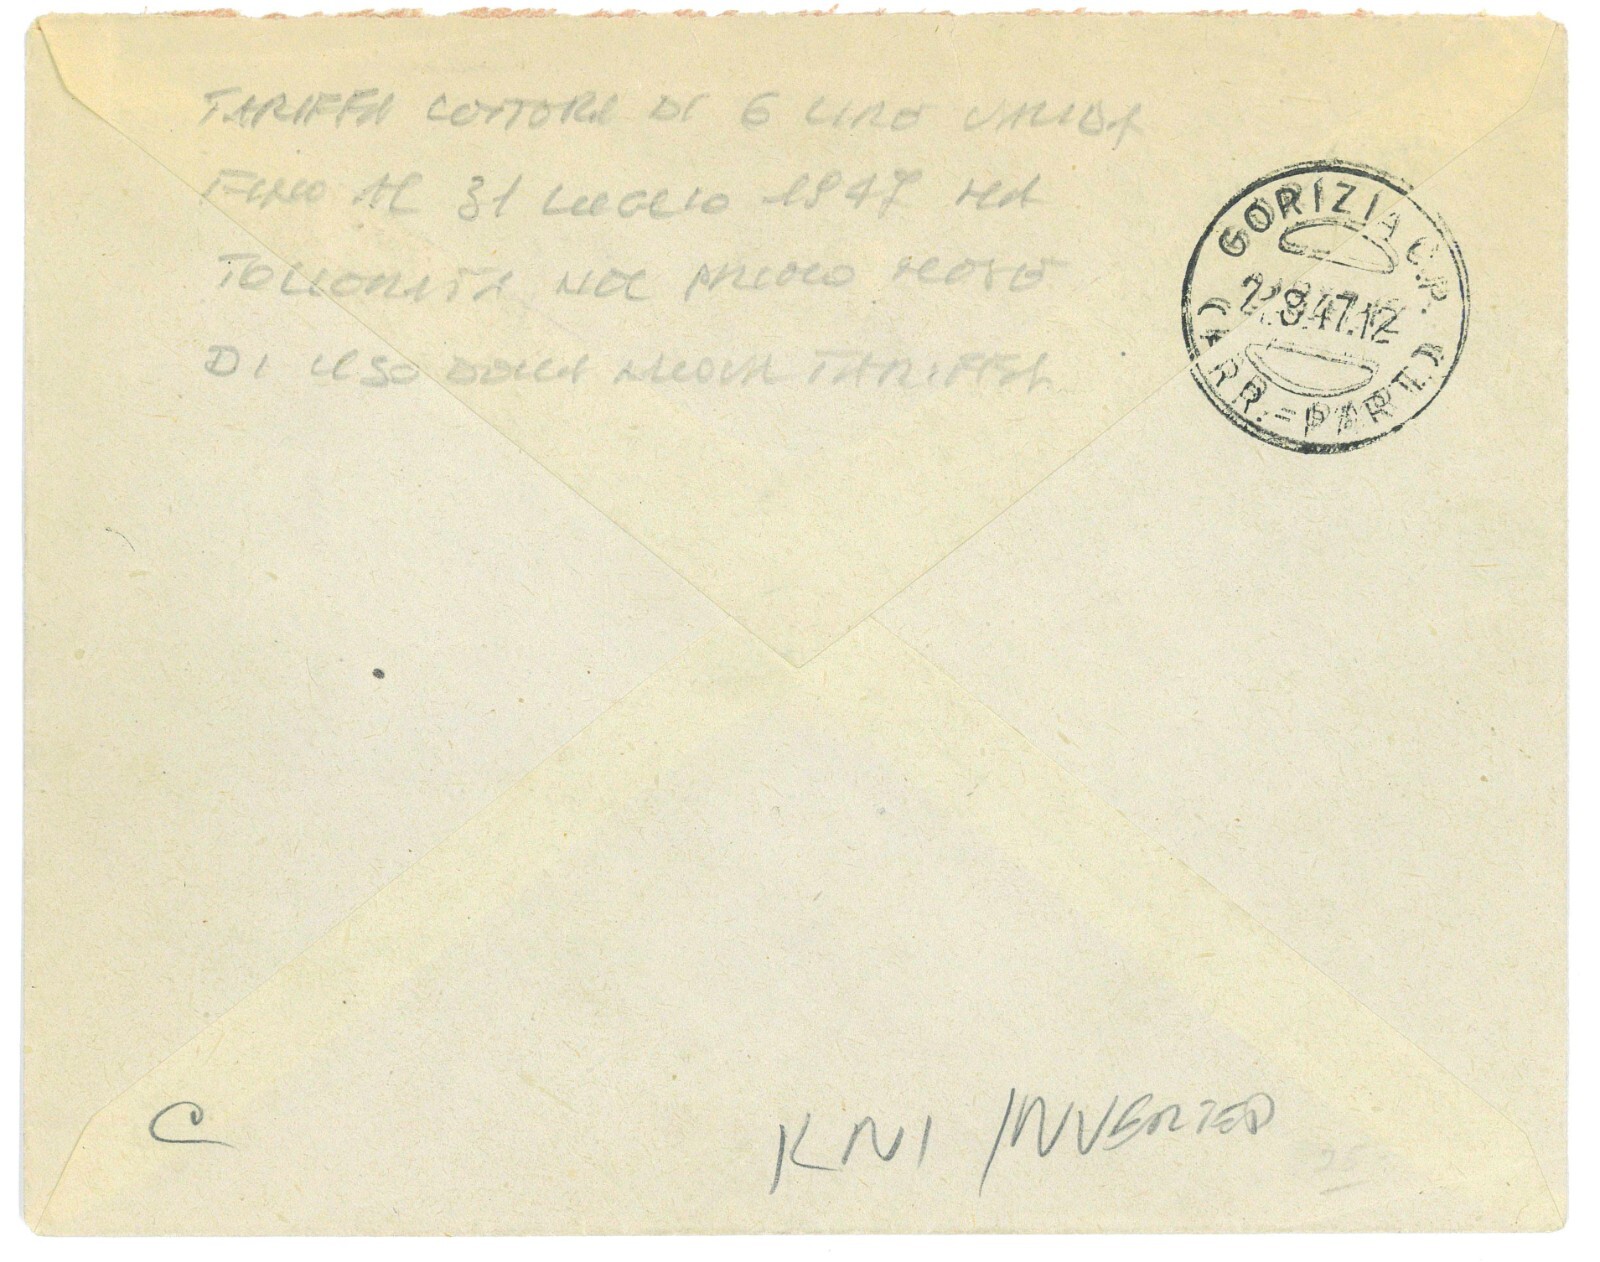 TARIFFA LETTERA DI 6 LIRE VALIDA
FINO AL 31 LUGLIO 1947 MA
TOLLERATA NEL PRIMO MESE
DI USO DELLA NUOVA TARIFFA
GORIZIA C.P.
2.8.47.12
(ARR.=PART.)
C
KNI INVERTED